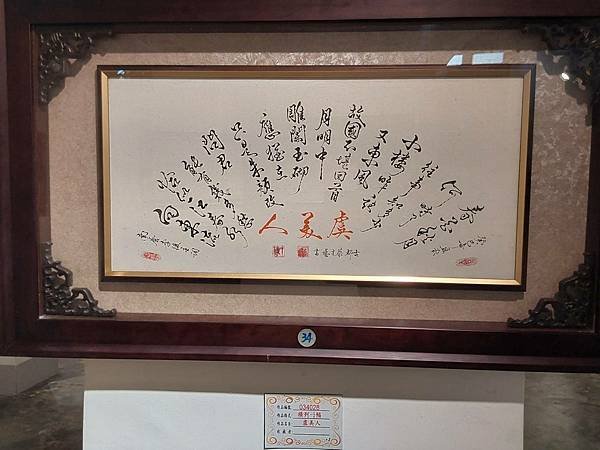 春花秋月
何時了
往事知多少
小樓昨夜
又東風
故國不堪回首
月明中
雕闌玉砌
應猶在
只是朱顏改
問君
能有幾多愁
恰似一江春水
向東流
虞美人
34
作品編號 034028
作品名稱 虞美人
收藏者